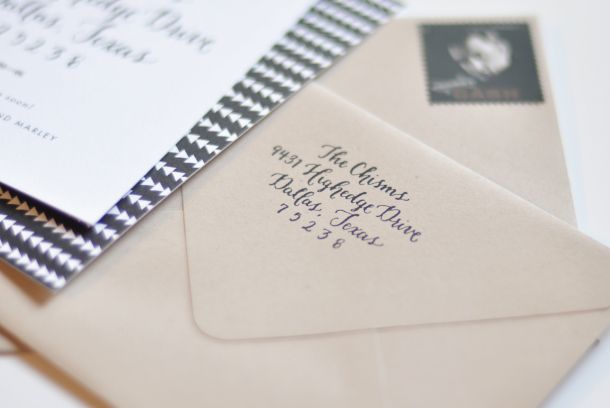 Highedge Drive
Dallas, Texas
75238
soon!
ND MARLEY
CASH
The Chisms
9431 Highedge Drive
Dallas, Texas
75238